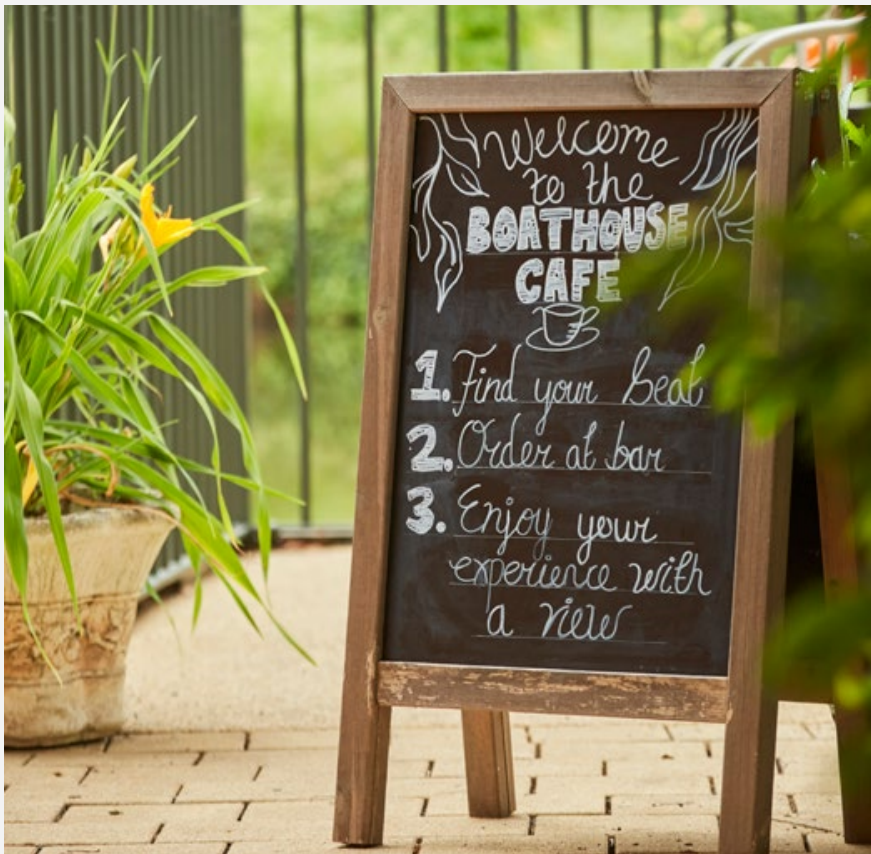 Welcome
to the
BOATHOUSE
CAFE
1. Find your Seat
2. Order at bar
3. Enjoy your
experience with
a view